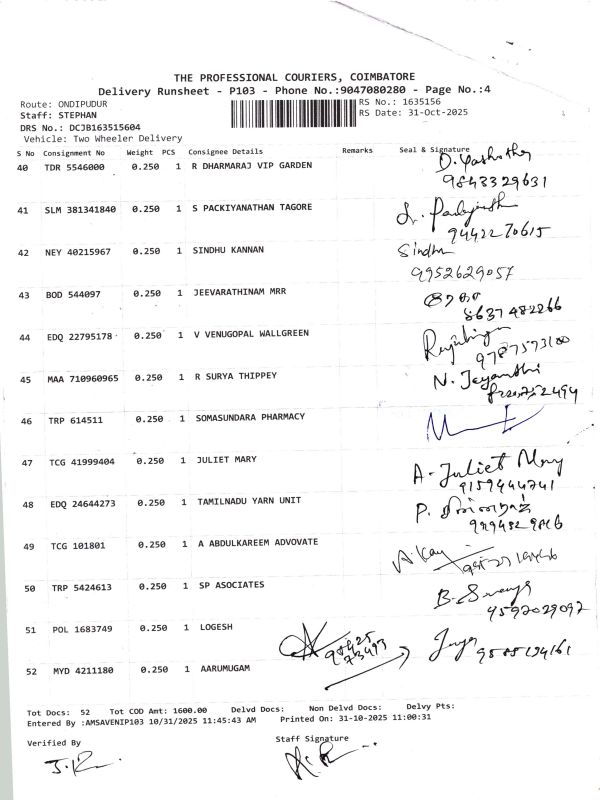 THE PROFESSIONAL COURIERS, COIMBATORE
Delivery Runsheet - P103 - Phone No.:9047080280 - Page No.:4
Route: ONDIPUDUR RS No.: 1635156
Staff: STEPHAN RS Date: 31-Oct-2025
DRS No.: DCJB163515604
Vehicle: Two Wheeler Delivery
S No Consignment No Weight PCS Consignee Details Remarks Seal & Signature
40 TDR 5546000 0.250 1 R DHARMARAJ VIP GARDEN
9843329631
41 SLM 381341840 0.250 1 S PACKIYANATHAN TAGORE
9442270615
42 NEY 40215967 0.250 1 SINDHU KANNAN Sindhu
9952629057
43 BOD 544097 0.250 1 JEEVARATHINAM MRR
8637482266
44 EDQ 22795178 0.250 1 V VENUGOPAL WALLGREEN
45 MAA 710960965 0.250 1 R SURYA THIPPEY N. Jeyanthi
46 TRP 614511 0.250 1 SOMASUNDARA PHARMACY
47 TCG 41999404 0.250 1 JULIET MARY A. Juliet Mary
9159444741
48 EDQ 24644273 0.250 1 TAMILNADU YARN UNIT
49 TCG 101801 0.250 1 A ABDULKAREEM ADVOVATE
50 TRP 5424613 0.250 1 SP ASOCIATES
4592029092
51 POL 1683749 0.250 1 LOGESH
52 MYD 4211180 0.250 1 AARUMUGAM
Tot Docs: 52 Tot COD Amt: 1600.00 Delvd Docs: Non Delvd Docs: Delvy Pts:
Entered By :AMSAVENIP103 10/31/2025 11:45:43 AM Printed On: 31-10-2025 11:00:31
Verified By Staff Signature